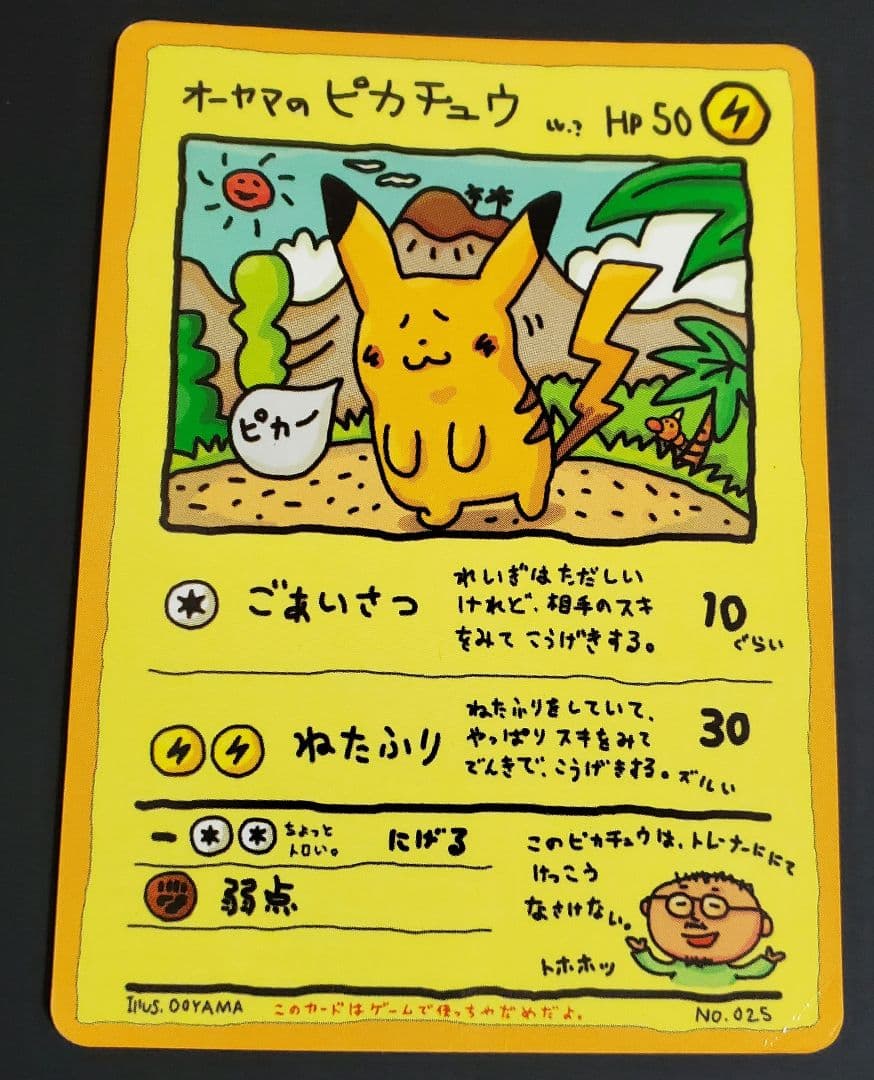 オーヤマのピカチュウ LV.? HP 50
ピカー
ごあいさつ
れいぎはただしい
けれど、相手のスキ
をみてこうげきする。
10
ぐらい
ねたふり
ねたふりをしていて、
やっぱりスキをみて
でんきで、こうげきする。ズルい
30
ー
ちょっと
トロい。
にげる
弱点
このピカチュウは、トレーナーににて
けっこう
なさけない。
トホホッ
Illus. OOYAMA
このカードはゲームで使っちゃだめだよ。
NO. 025